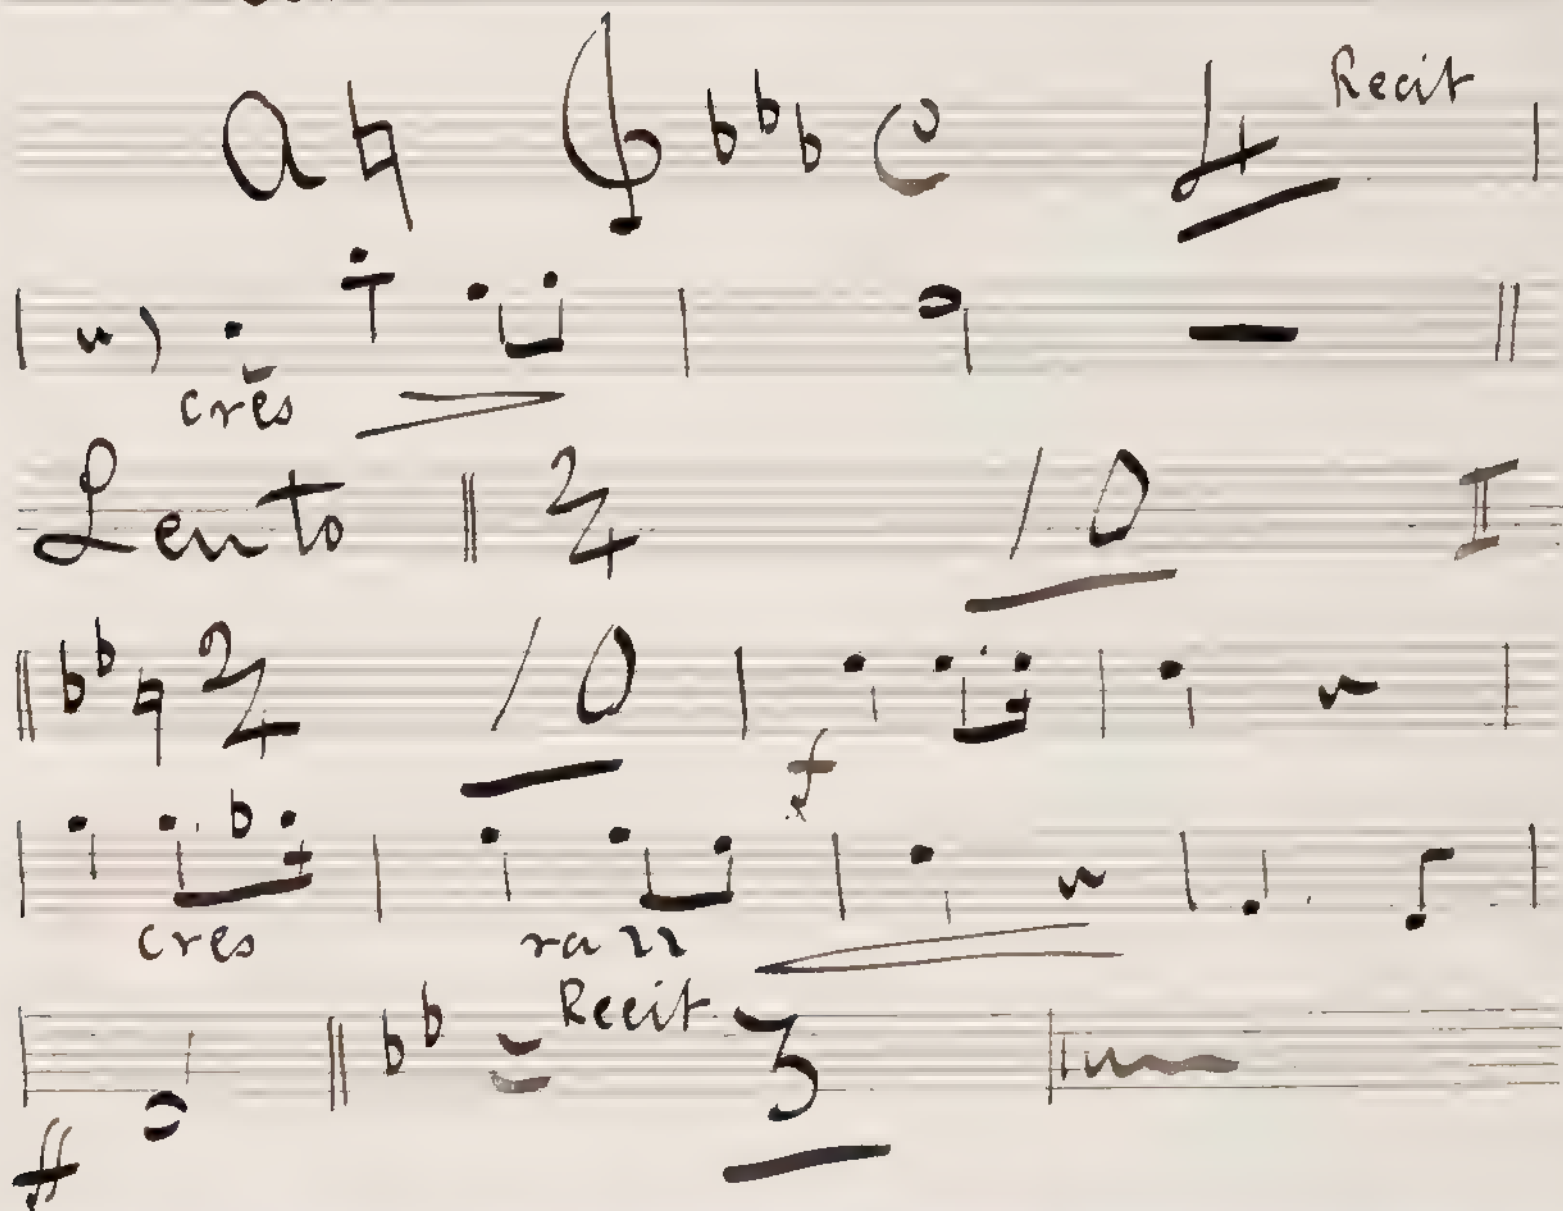 a 4 Recit
cres
Lento 2/4 10 I
2/4 10
f
cres rall
Recit 3
ff